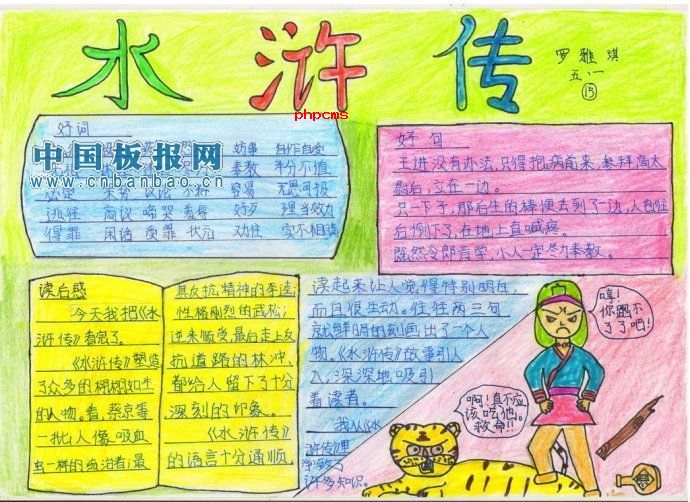 水浒传
罗雅琪
五.一
⑮
phpcms
中国板报网
www.cnbanbao.cn
好词
妨事 自作自受
奉教 半分不值
容易 无恩可报
逃狂 商议 啼哭 羞辱 好歹 理当效力
得罪 闲话 受罪 状元 劝住 实不相瞒
好句
王进没有办法,只得抱病前来,参拜高太
尉后,立在一边。
只一下子,那后生的棒便丢到了一边,人也往
后倒下了,在地上直喊疼。
既然令郎肯学,小人一定尽力奉教。
读后感
今天我把《水
浒传》看完了。
《水浒传》塑造
了众多的栩栩如生
的人物。看,蔡京等
一批人像吸血
虫一样的统治者;最
具反抗精神的李逵;
性格刚烈的武松;
逆来顺受最后走上反
抗道路的林冲,
都给人留下了十分
深刻的印象。
《水浒传》
的语言十分通顺,
读起来让人觉得特别明白,
而且很生动。往往两三句
就鲜明的刻画出了一个人
物。《水浒传》故事引人
入,深深地吸引
着读者。
我从《水
浒传》里
学会了
许多知识。
哼!
你跑不
了了吧!
啊!真不应
该吃他。
救命!!